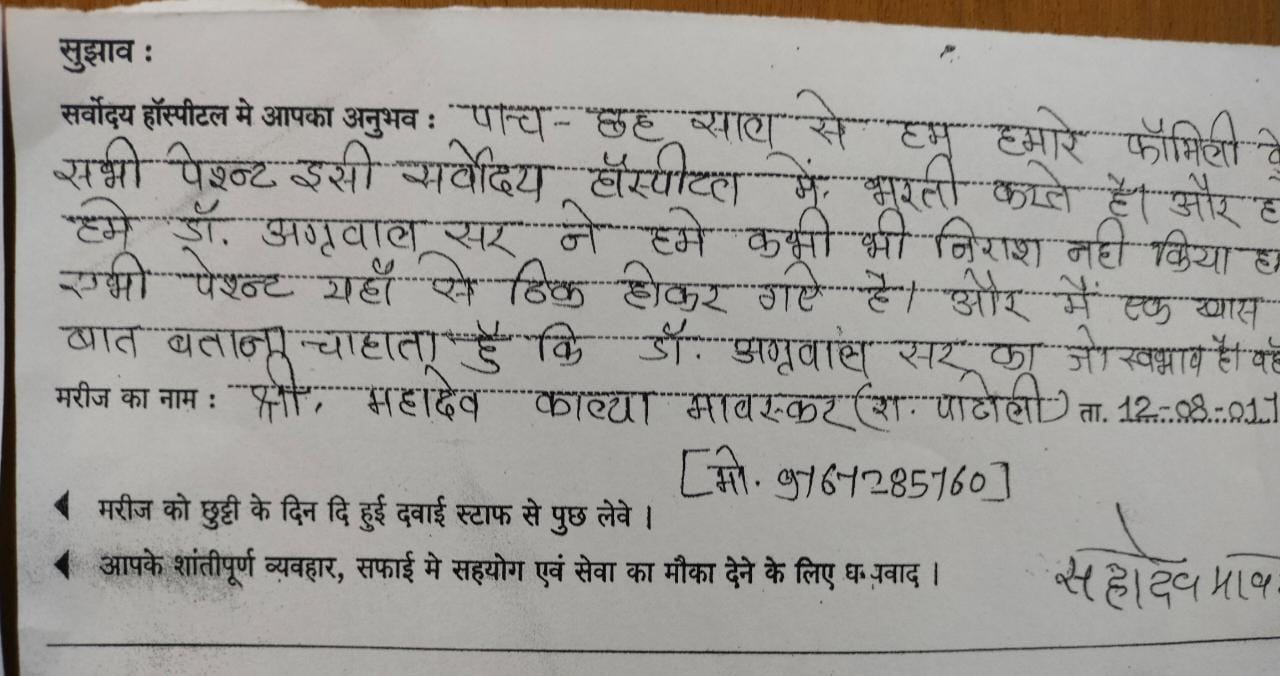 सुझाव :
सर्वोदय हॉस्पीटल मे आपका अनुभव : पाच - छह साल से हम हमारे फॉमिली
सभी पेशन्ट इसी सर्वोदय हॉस्पीटल में भरती करते है। और
हमे डॉ. अग्रवाल सर ने हमे कभी भी निराश नही किया
सभी पेशन्ट यहाँ से ठिक होकर गऐ है। और मैं एक खास
बात बताना चाहाता हुँ कि डॉ. अग्रवाल सर का जो स्वभाव है। वह
मरीज का नाम : श्री. महादेव काल्या मावस्कर (रा. पाटोली) ता. 12-08-017
[मो. 9767285760]
◀ मरीज को छुट्टी के दिन दि हुई दवाई स्टाफ से पुछ लेवे ।
◀ आपके शांतीपूर्ण व्यवहार, सफाई मे सहयोग एवं सेवा का मौका देने के लिए धन्यवाद ।